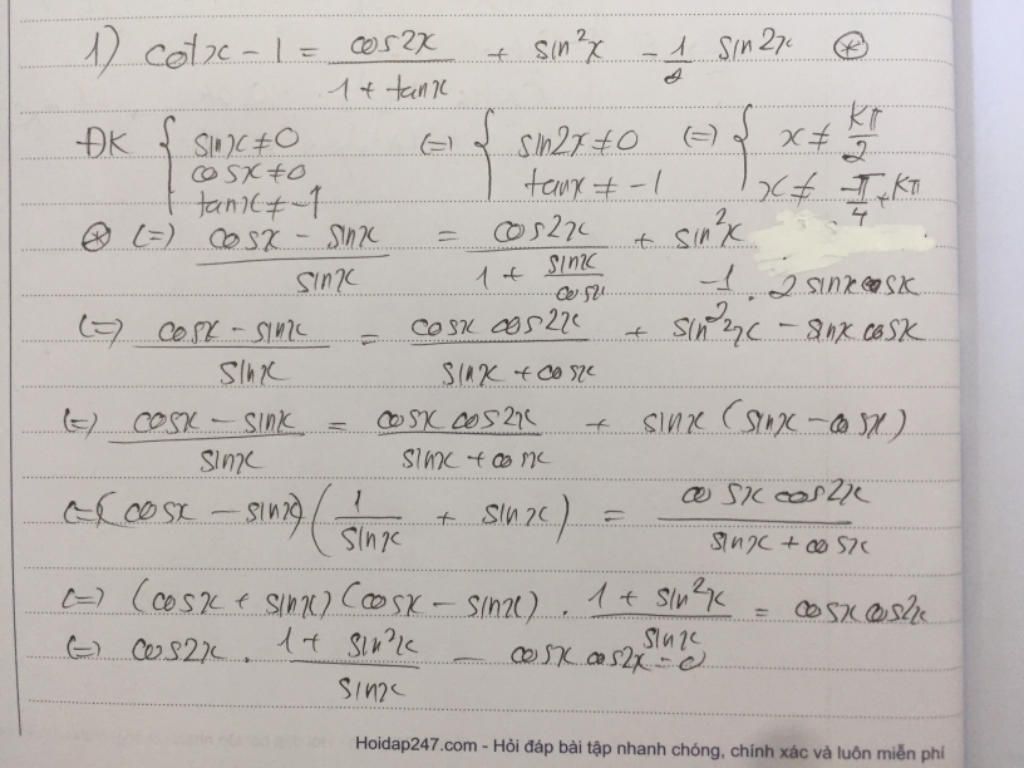 1) cotx - 1 = cos2x / (1 + tanx) + sin²x - 1/2 sin2x ⊛
ĐK { sinx ≠ 0 ; cosx ≠ 0 ; tanx ≠ -1 (=) { sin2x ≠ 0 ; tanx ≠ -1 (=) { x ≠ kπ/2 ; x ≠ -π/4 + kπ
⊛ (=) (cosx - sinx) / sinx = cos2x / (1 + sinx/cosx) + sin²x
-1/2 . 2 sinx cosx
(=) (cosx - sinx) / sinx = cosx cos2x / (sinx + cosx) + sin²x - sinx cosx
(=) (cosx - sinx) / sinx = cosx cos2x / (sinx + cosx) + sinx (sinx - cosx)
(=) (cosx - sinx) (1/sinx + sinx) = cosx cos2x / (sinx + cosx)
(=) (cosx + sinx) (cosx - sinx) . (1 + sin²x) / sinx = cosx cos2x
(=) cos2x . (1 + sin²x) / sinx - cosx cos2x = 0
Hoidap247.com - Hỏi đáp bài tập nhanh chóng, chính xác và luôn miễn phí